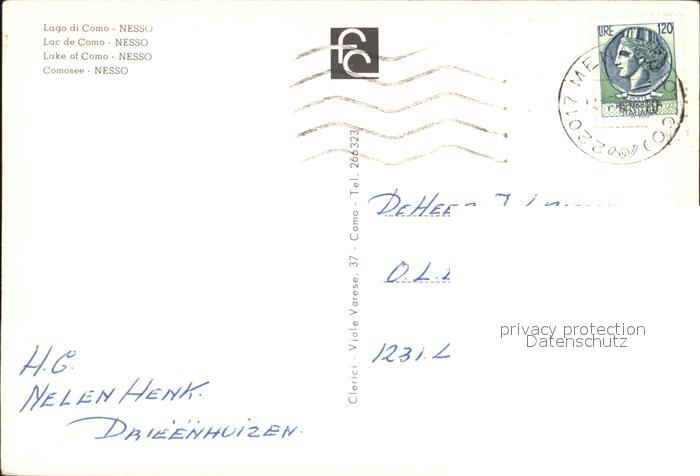 Lago di Como - NESSO
Lac de Como - NESSO
Lake of Como - NESSO
Comosee - NESSO
FC
LIRE 120
22017 ME
Clerici - Viale Varese, 37 - Como - Tel. 266323
DeHee
O.L.
1231.L
privacy protection
Datenschutz
H.G.
NELEN HENK.
DRIEËNHUIZEN.